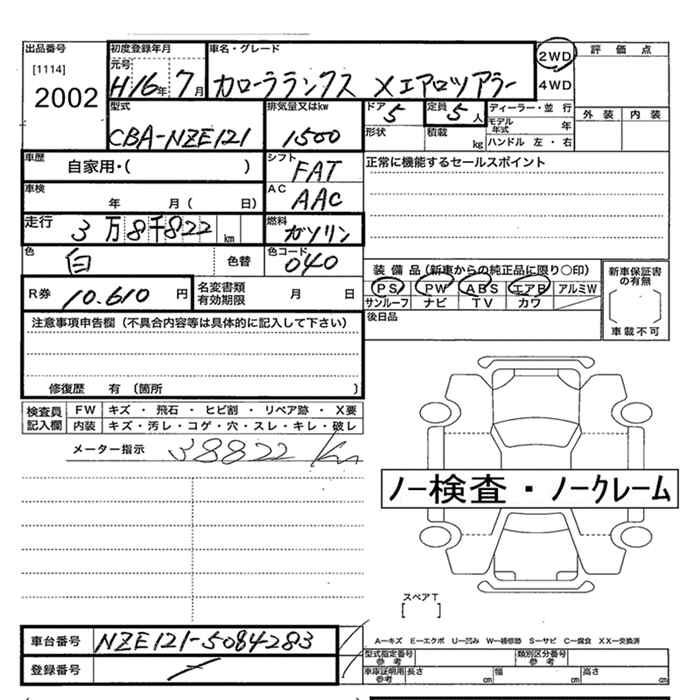 出品番号 初度登録年月 車名・グレード 2WD 評価点
[1114] 元号 4WD
2002 H16年 7月 カローラランクス Xエアロツアラー 外装 内装
型式 排気量又はkw ドア 定員 ディーラー・並行
CBA-NZE121 1500 5 5人 モデル年式 年
形状 積載 kg ハンドル 左・右
車歴 自家用・( ) シフト FAT 正常に機能するセールスポイント
車検 年 月( 日) AC AAC
走行 3万8千822km 燃料 ガソリン
色 白 色替 色コード 040 装備品(新車からの純正品に限り○印) 新車保証書の有無
R券 10.610円 名変書類有効期限 月 日 PS PW ABS エアB アルミW
サンルーフ ナビ TV カワ
注意事項申告欄(不具合内容等は具体的に記入して下さい) 後日品 車載不可
修復歴 有(箇所 )
検査員記入欄 FW キズ・飛石・ヒビ割・リペア跡・X要
内装 キズ・汚レ・コゲ・穴・スレ・キレ・破レ
メーター指示 38822 km
ノー検査・ノークレーム
スペアT
[ ]
車台番号 NZE121-5084283 A―キズ E―エクボ U―凹み W―補修跡 S―サビ C―腐食 XX―交換済
登録番号 ― 型式指定番号 参考 類別区分番号 参考
車庫証明用 参考 長さ cm 幅 cm 高さ cm